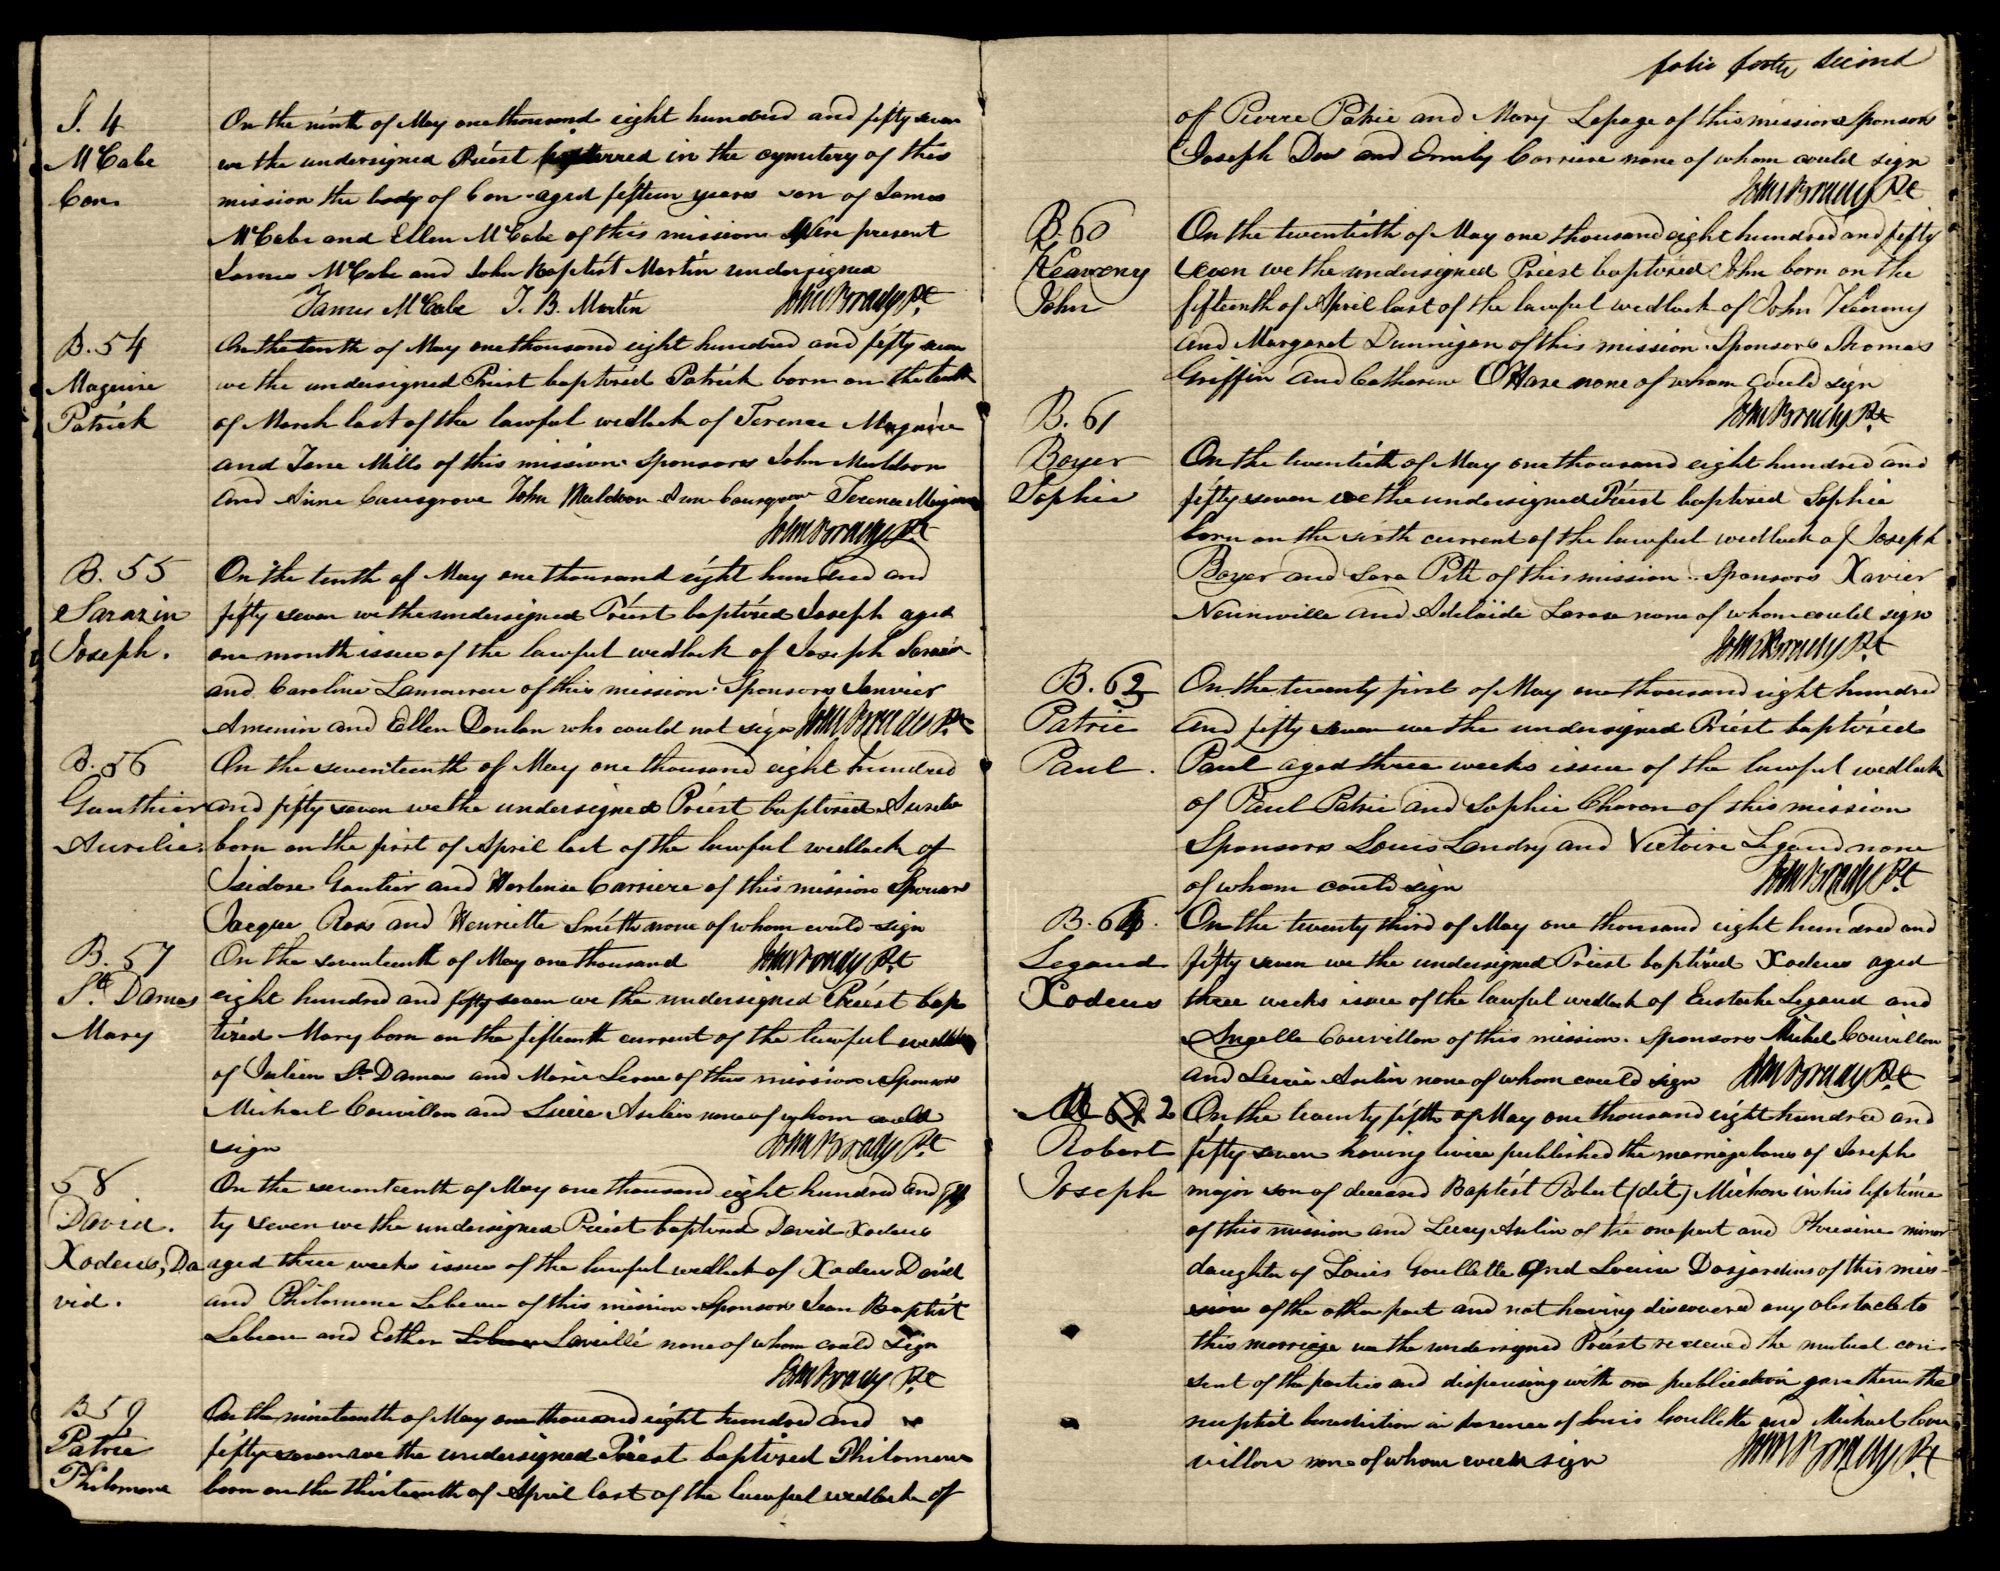 S. 4
McCabe
Con.
On the ninth of May one thousand eight hundred and fifty seven
we the undersigned Priest interred in the cymetery of this
mission the body of Con aged fifteen years son of James
McCabe and Ellen McCabe of this mission Were present
James McCabe and John Baptist Martin undersigned
James McCabe J. B. Martin John Brady Pt.
B. 54
Maguire
Patrick
On the tenth of May one thousand eight hundred and fifty seven
we the undersigned Priest baptized Patrick born on the tenth
of March last of the lawful wedlock of Terence Maguire
and Jane Mills of this mission. Sponsors John Muldoon
and Anne Causgrove John Muldoon Ann Causgrove Terence Maguire
John Brady Pt.
B. 55
Sarazin
Joseph.
On the tenth of May one thousand eight hundred and
fifty seven we the undersigned Priest baptized Joseph aged
one month issue of the lawful wedlock of Joseph Sarazin
and Caroline Lamoureu of this mission. Sponsors Janvier
and Ellen Donlan who could not sign John Brady Pt.
B. 56
Gauthier
Aurelie.
On the seventeenth of May one thousand eight hundred
and fifty seven we the undersigned Priest baptized Aurelie
born on the first of April last of the lawful wedlock of
Isidore Gautier and Hortense Carriere of this mission Sponsors
Jacque Ross and Henriette Smith none of whom could sign
John Brady Pt.
B. 57
St. Damas
Mary
On the seventeenth of May one thousand
eight hundred and fifty seven we the undersigned Priest bap
tized Mary born on the fifteenth current of the lawful wedlock
of Julien St. Damas and Marie Leroue of this mission. Sponsors
Michael Couvillon and Lucie Aubin none of whom could
sign John Brady Pt.
58
David.
Xodeus, Da
vid.
On the seventeenth of May one thousand eight hundred and fif
ty seven we the undersigned Priest baptized David Xodeus
aged three weeks issue of the lawful wedlock of Xodeus David
and Philomene Lebeau of this mission Sponsors Jean Baptist
Lebeau and Esther Lebeau Laveillé none of whom could sign
John Brady Pt.
B 59
Patrie
Philomene
On the nineteenth of May one thousand eight hundred and
fifty seven we the undersigned Priest baptized Philomene
born on the thirteenth of April last of the lawful wedlock of
folio forty second
of Pierre Patrie and Mary Lepage of this mission Sponsors
Joseph Dow and Emily Carriere none of whom could sign
John Brady Pt.
B. 60
Keaveny
John
On the twentieth of May one thousand eight hundred and fifty
seven we the undersigned Priest baptized John born on the
fifteenth of April last of the lawful wedlock of John Keaveny
and Margaret Dunnigan of this mission. Sponsors Thomas
Griffin and Catherine O'Hare none of whom could sign
John Brady Pt.
B. 61
Boyer
Sophie
On the twentieth of May one thousand eight hundred and
fifty seven we the undersigned Priest baptized Sophie
born on the sixth current of the lawful wedlock of Joseph
Boyer and Sara Pitt of this mission. Sponsors Xavier
Neunville and Adelaïde Larose none of whom could sign
John Brady Pt.
B. 62
Patrie
Paul.
On the twenty first of May one thousand eight hundred
and fifty seven we the undersigned Priest baptized
Paul aged three weeks issue of the lawful wedlock
of Paul Patrie and Sophie Charon of this mission
Sponsors Louis Landry and Victoire Legaud none
of whom could sign John Brady Pt.
B. 63.
Legaud
Xodeus
On the twenty third of May one thousand eight hundred and
fifty seven we the undersigned Priest baptized Xodeus aged
three weeks issue of the lawful wedlock of Eustache Legaud and
Angelle Couvillon of this mission. Sponsors Michel Couvillon
and Lucie Aubin none of whom could sign John Brady Pt.
M 2
Robert
Joseph
On the twenty fifth of May one thousand eight hundred and
fifty seven having twice published the marriage bans of Joseph
major son of deceased Baptist Robert (dit) Michon in his lifetime
of this mission and Lucy Aubin of the one part and minor
daughter of Louis Goullette and Louise Desjardins of this mis-
sion of the other part and not having discovered any obstacle to
this marriage we the undersigned Priest received the mutual con-
sent of the parties and dispensing with one publication gave them the
nuptial benediction in presence of Louis Goullette and Michael Cou
villon none of whom could sign John Brady Pt.